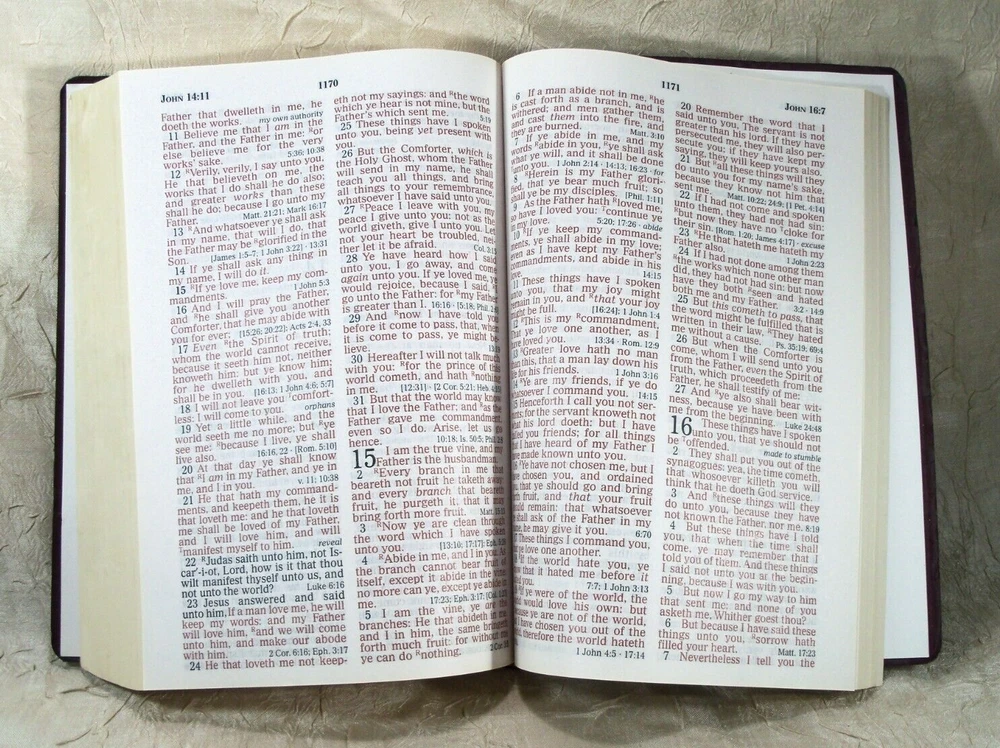 JOHN 14:11
1170
Father that dwelleth in me, he
doeth the works. my own authority
11 Believe me that I am in the
Father, and the Father in me: ᴿor
else believe me for the very
works' sake. 5:36; 10:38
12 ᴿVerily, verily, I say unto you,
He that believeth on me, the
works that I do shall he do also;
and greater works than these
shall he do; because I go unto my
Father. Matt. 21:21; Mark 16:17
13 ᴿAnd whatsoever ye shall ask
in my name, that will I do, that
the Father may be ᴿglorified in the
Son. [James 1:5-7; 1 John 3:22] · 13:31
14 If ye shall ask any thing in
my name, I will do it.
15 ᴿIf ye love me, keep my com-
mandments. 1 John 5:3
16 And I will pray the Father,
and ᴿhe shall give you another
Comforter, that he may abide with
you for ever; [15:26; 20:22]; Acts 2:4, 33
17 Even ᴿthe Spirit of truth;
whom the world cannot receive,
because it seeth him not, neither
knoweth him: but ye know him;
for he dwelleth with you, and
shall be in you. [16:13; 1 John 4:6; 5:7]
18 I will not leave you ᵀcomfort-
less: I will come to you. orphans
19 Yet a little while, and the
world seeth me no more; but ᴿye
see me: ᴿbecause I live, ye shall
live also. 16:16, 22 · [Rom. 5:10]
20 At that day ye shall know
that ᴿI am in my Father, and ye in
me, and I in you. v. 11; 10:38
21 He that hath my command-
ments, and keepeth them, he it is
that loveth me: and he that loveth
me shall be loved of my Father,
and I will love him, and will
ᵀmanifest myself to him. reveal
22 ᴿJudas saith unto him, not Is-
car'-i-ot, Lord, how is it that thou
wilt manifest thyself unto us, and
not unto the world? Luke 6:16
23 Jesus answered and said
unto him, If a man love me, he will
keep my words: and my Father
will love him, ᴿand we will come
unto him, and make our abode
with him. 2 Cor. 6:16; Eph. 3:17
24 He that loveth me not keep-
eth not my sayings: and ᴿthe word
which ye hear is not mine, but the
Father's which sent me. 5:19
25 These things have I spoken
unto you, being yet present with
you.
26 But the Comforter, which is
the Holy Ghost, whom the Father
will send in my name, he shall
teach you all things, and bring
all things to your remembrance,
whatsoever I have said unto you.
27 ᴿPeace I leave with you, my
peace I give unto you: not as the
world giveth, give I unto you. Let
not your heart be troubled, nei-
ther let it be afraid. Col. 3:15
28 Ye have heard how I said
unto you, I go away, and come
again unto you. If ye loved me, ye
would rejoice, because I said, ᴿI
go unto the Father: for ᴿmy Father
is greater than I. 16:16 · [5:18; Phil. 2:6]
29 And ᴿnow I have told you
before it come to pass, that, when
it is come to pass, ye might be-
lieve. 13:19
30 Hereafter I will not talk much
with you: ᴿfor the prince of this
world cometh, and hath ᴿnothing
in me. [12:31] · [2 Cor. 5:21; Heb. 4:15]
31 But that the world may know
that I love the Father; and ᴿas the
Father gave me commandment,
even so I do. Arise, let us go
hence. 10:18; Is. 50:5; Phil. 2:8
15 I am the true vine, and my
Father is the husbandman.
2 ᴿEvery branch in me that
beareth not fruit he taketh away:
and every branch that beareth
fruit, he purgeth it, that it may
bring forth more fruit. Matt. 15:13
3 ᴿNow ye are clean through
the word which I have spoken
unto you. [13:10; 17:17]; Eph. 5:26
4 ᴿAbide in me, and I in you. As
the branch cannot bear fruit of
itself, except it abide in the vine;
no more can ye, except ye abide in
me. 17:23; Eph. 3:17; [Col. 1:23]
5 I am the vine, ye are the
branches: He that abideth in me,
and I in him, the same bringeth
forth much fruit: for without me
ye can do ᴿnothing. 2 Cor. 3:5
1171
JOHN 16:7
6 If a man abide not in me, ᴿhe
is cast forth as a branch, and is
withered; and men gather them,
and cast them into the fire, and
they are burned. Matt. 3:10
7 If ye abide in me, and my
words ᴿabide in you, ᴿye shall ask
what ye will, and it shall be done
unto you. 1 John 2:14 · 14:13; 16:23 · for
8 ᴿHerein is my Father glori-
fied, that ye bear much fruit; so
shall ye be my disciples. [Phil. 1:11]
9 As the Father hath ᴿloved me,
so have I loved you: ᵀcontinue ye
in my love. 5:20; 17:26 · abide
10 If ye keep my command-
ments, ye shall abide in my love;
even as I have kept my Father's
commandments, and abide in his
love. 14:15
11 These things have I spoken
unto you, that my joy might
remain in you, and ᴿthat your joy
might be full. [16:24]; 1 John 1:4
12 ᴿThis is my ᴿcommandment,
ye love one another, as I
loved you. 13:34 · Rom. 12:9
13 ᴿGreater love hath no man
than this, that a man lay down his
life for his friends. 1 John 3:16
14 ᴿYe are my friends, if ye do
whatsoever I command you. 14:15
15 Henceforth I call you not ser-
vants; for the servant knoweth not
what his lord doeth: but I have
called you friends; for all things
that I have heard of my Father I
have made known unto you.
16 ᴿYe have not chosen me, but I
have chosen you, and ordained
you, that ye should go and bring
forth fruit, and that your fruit
should remain: that whatsoever
ye shall ask of the Father in my
name, he may give it you. 6:70
17 These things I command you,
that ye love one another.
18 ᴿIf the world hate you, ye
know that it hated me before it
hated you. 7:7; 1 John 3:13
19 ᴿIf ye were of the world, the
world would love his own: but
because ye are not of the world,
but I have chosen you out of the
world, therefore the world hateth
1 John 4:5 · 17:14
20 Remember the word that I
said unto you, The servant is not
greater than his lord. If they have
persecuted me, they will also per-
secute you; if they have kept my
saying, they will keep yours also.
21 But ᴿall these things will they
do unto you for my name's sake,
because they know not him that
sent me. Matt. 10:22; 24:9; [1 Pet. 4:14]
22 If I had not come and spoken
unto them, they had not had sin:
but now they have no ᵀcloke for
their sin. [Rom. 1:20; James 4:17] · excuse
23 ᴿHe that hateth me hateth my
Father also. 1 John 2:23
24 If I had not done among them
ᴿthe works which none other man
did, they had not had sin: but now
have they both ᴿseen and hated
both me and my Father. 3:2 · 14:9
25 But this cometh to pass, that
the word might be fulfilled that is
written in their law, ᴿThey hated
me without a cause. Ps. 35:19; 69:4
26 But when the Comforter is
come, whom I will send unto you
from the Father, even the Spirit of
truth, which proceedeth from the
Father, he shall testify of me:
27 And ᴿye also shall bear wit-
ness, because ye have been with
me from the beginning. Luke 24:48
16 These things have I spoken
unto you, that ye should not
be ᵀoffended. made to stumble
2 They shall put you out of the
synagogues: yea, the time cometh,
that whosoever killeth you will
think that he doeth God service.
3 And ᴿthese things will they
do unto you, because they have
not known the Father, nor me. 8:19
4 But these things have I told
you, that when the time shall
come, ye may remember that I
told you of them. And these things
I said not unto you at the begin-
ning, because I was with you.
5 But now I go my way to him
that sent me; and none of you
asketh me, Whither goest thou?
6 But because I have said these
things unto you, ᴿsorrow hath
filled your heart. Matt. 17:23
7 Nevertheless I tell you the